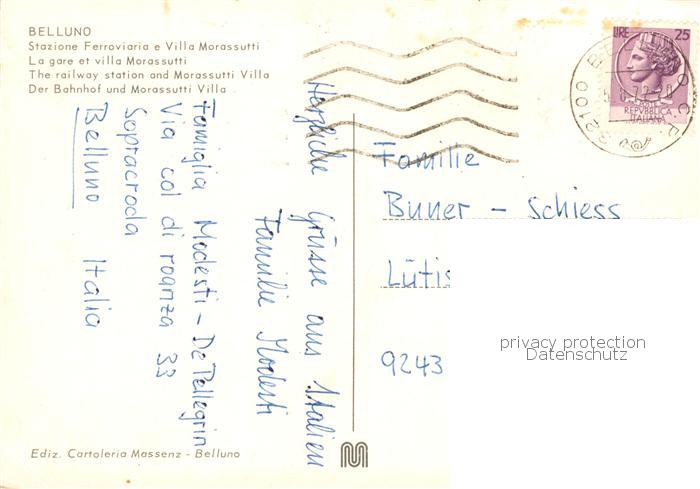 BELLUNO
Stazione Ferroviaria e Villa Morassutti
La gare et villa Morassutti
The railway station and Morassutti Villa
Der Bahnhof und Morassutti Villa
LIRE 25
REPVBBLICA
ITALIANA
32100
Herzliche Grüsse aus Italien
Familie Modesti
Famiglia Modesti - De Pellegrin
Via col di roanza 33
Sopracroda
Belluno Italia
Familie
Buner - Schiess
Lütis
9243
privacy protection
Datenschutz
Ediz. Cartoleria Massenz - Belluno